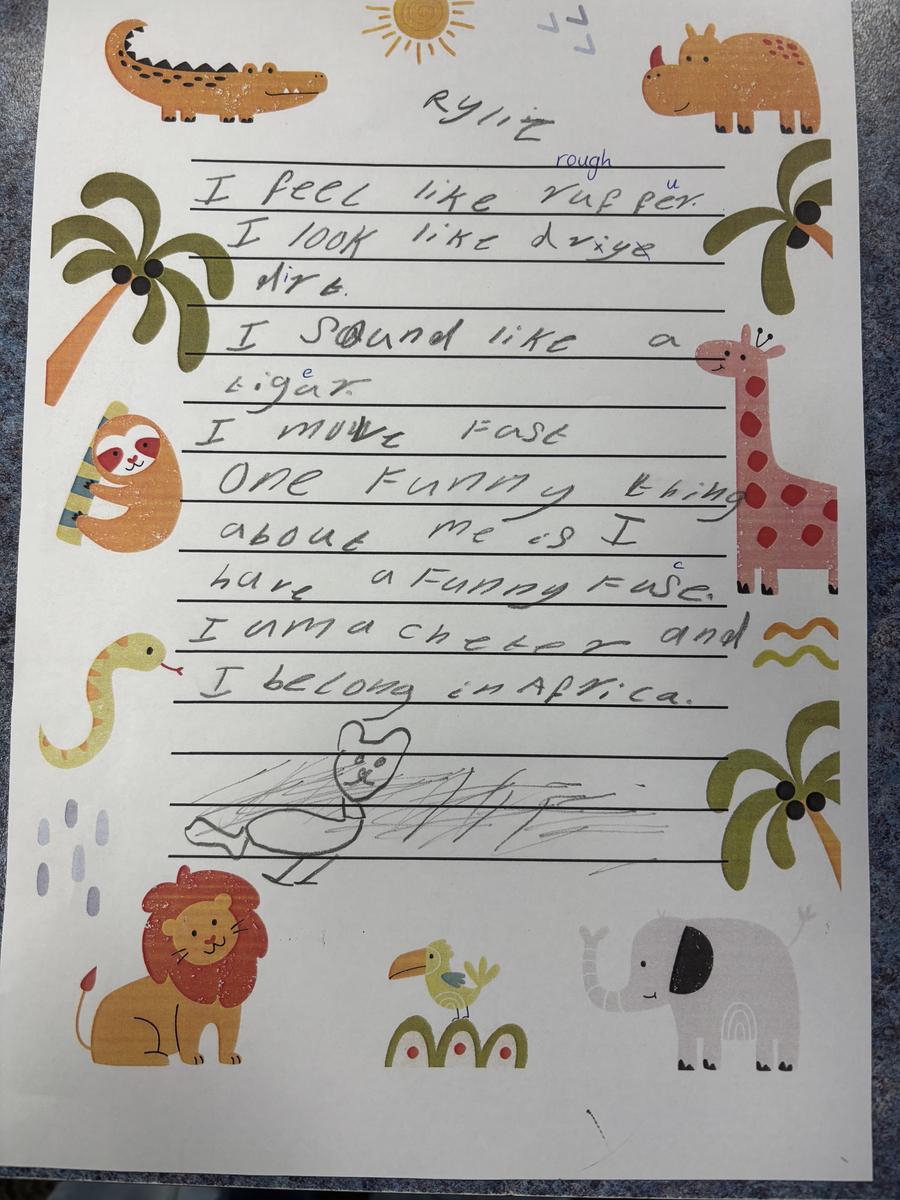 Rylie
rough
u
I feel like ruf fer.
I look like driye
dirt.
I Sound like a
e
tigar.
I move Fast
One Funny thing
about me is I
c
have a Funny Fase.
I am a cheter and
I belong in Africa.